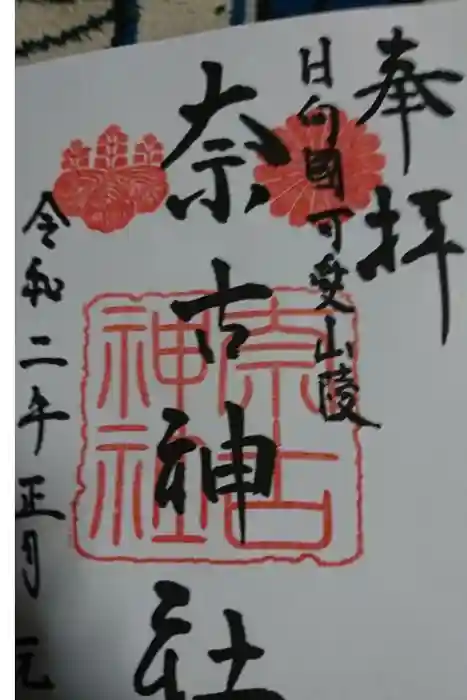 奉拝
日向國可愛山陵
奈古神社
奈古
神社
令和二年正月元